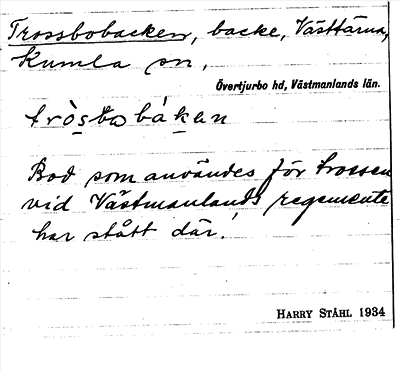 Trossbobacken, backe, Västtärna,
Kumla sn,
Övertjurbo hd, Västmanlands län.
tròs̱tabákan
Bod som användes för trossen
vid Västmanlands regemente
har stått där.
HARRY STÅHL 1934